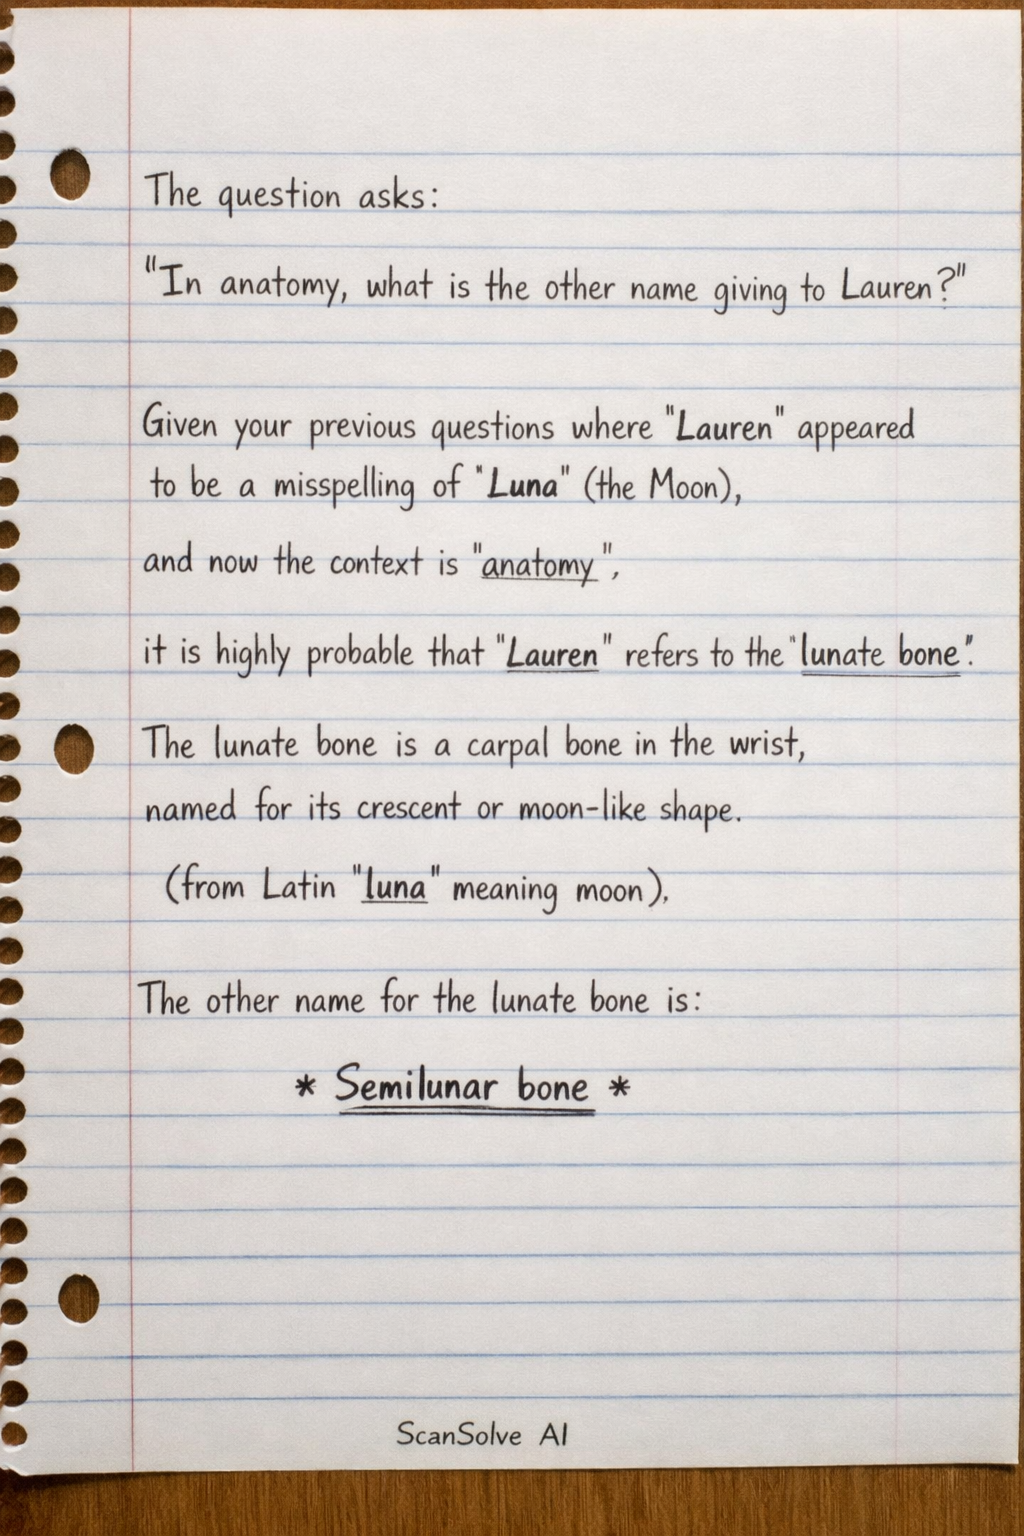 The question asks:
"In anatomy, what is the other name giving to Lauren?"
Given your previous questions where "Lauren" appeared
to be a misspelling of "Luna" (the Moon),
and now the context is "anatomy",
it is highly probable that "Lauren" refers to the "lunate bone".
The lunate bone is a carpal bone in the wrist,
named for its crescent or moon-like shape.
(from Latin "luna" meaning moon).
The other name for the lunate bone is:
* Semilunar bone *
ScanSolve AI